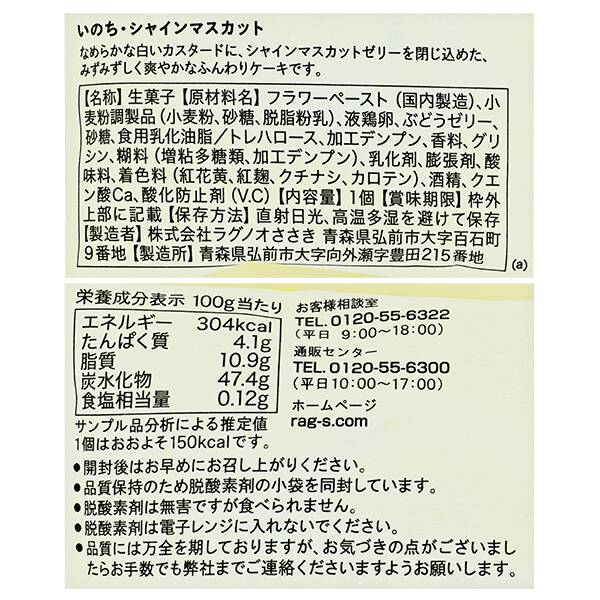 いのち・シャインマスカット
なめらかな白いカスタードに、シャインマスカットゼリーを閉じ込めた、
みずみずしく爽やかなふんわりケーキです。
【名称】生菓子【原材料名】フラワーペースト(国内製造)、小
麦粉調製品(小麦粉、砂糖、脱脂粉乳)、液鶏卵、ぶどうゼリー、
砂糖、食用乳化油脂/トレハロース、加工デンプン、香料、グリ
シン、糊料(増粘多糖類、加工デンプン)、乳化剤、膨張剤、酸
味料、着色料(紅花黄、紅麹、クチナシ、カロテン)、酒精、クエ
ン酸Ca、酸化防止剤(V.C)【内容量】1個【賞味期限】枠外
上部に記載【保存方法】直射日光、高温多湿を避けて保存
【製造者】株式会社ラグノオささき 青森県弘前市大字百石町
9番地【製造所】青森県弘前市大字向外瀬字豊田215番地
(a)
栄養成分表示 100g当たり
エネルギー 304kcal
たんぱく質 4.1g
脂質 10.9g
炭水化物 47.4g
食塩相当量 0.12g
サンプル品分析による推定値
1個はおおよそ150kcalです。
お客様相談室
TEL.0120-55-6322
(平日 9:00〜18:00)
通販センター
TEL.0120-55-6300
(平日10:00〜17:00)
ホームページ
rag-s.com
●開封後はお早めにお召し上がりください。
●品質保持のため脱酸素剤の小袋を同封しています。
●脱酸素剤は無害ですが食べられません。
●脱酸素剤は電子レンジに入れないでください。
●品質には万全を期しておりますが、お気づきの点がございまし
たらお手数でも弊社までご連絡くださいますようお願いします。